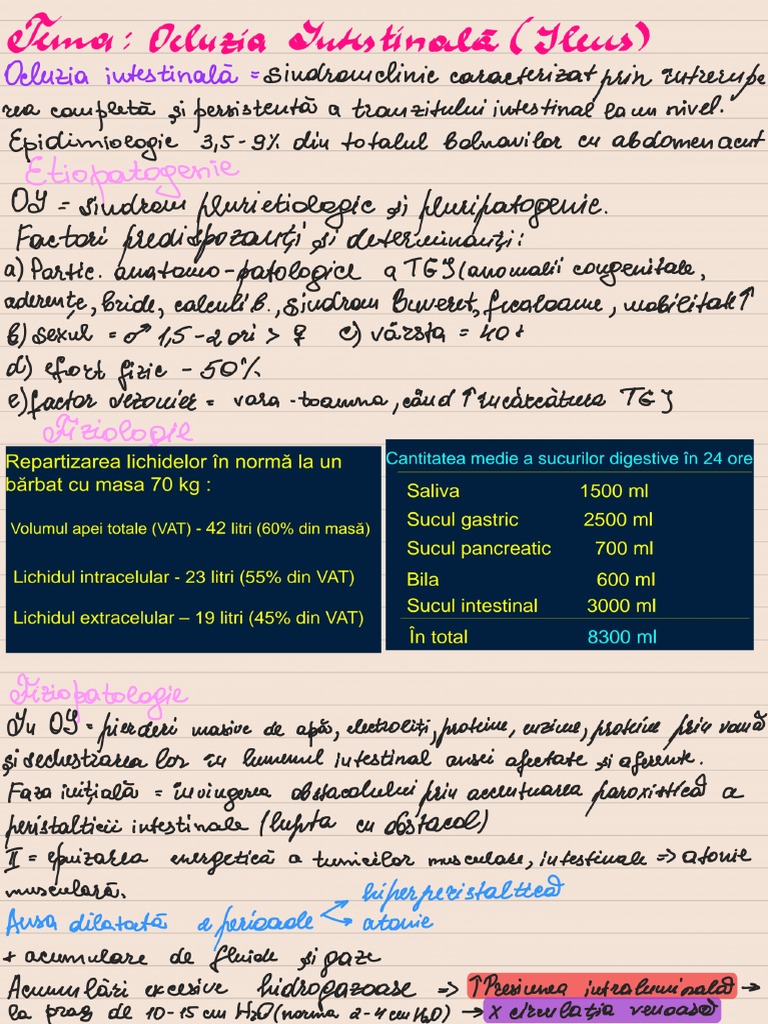 Tema: Ocluzia Intestinală (Ileus)
Ocluzia intestinală = sindrom clinic caracterizat prin întrerupe
rea completă și persistentă a tranzitului intestinal la un nivel.
Epidimiologie 3,5 - 9% din totalul bolnavilor cu abdomen acut
Etiopatogenie
OI = sindrom plurietiologic și pluripatogenic.
Factori predispozanți și determinanți:
a) Partic. anatomo-patologice a TGI (anomalii congenitale,
aderențe, bride, calculi b., sindrom Buveret, fecaloame, mobilitate ↑
b) sexul = ♂ 1,5 - 2 ori > ♀ c) vârsta = 40+
d) efort fizic - 50%
e) factor sezonier = vara - toamna, când ↑ încărcătura TGI
Fiziologie
Repartizarea lichidelor în normă la un
bărbat cu masa 70 kg :
Volumul apei totale (VAT) - 42 litri (60% din masă)
Lichidul intracelular - 23 litri (55% din VAT)
Lichidul extracelular – 19 litri (45% din VAT)
Cantitatea medie a sucurilor digestive în 24 ore
Saliva 1500 ml
Sucul gastric 2500 ml
Sucul pancreatic 700 ml
Bila 600 ml
Sucul intestinal 3000 ml
În total 8300 ml
Fiziopatologie
În OI = pierderi masive de apă, electroliți, proteine, enzime, proteine prin vomă
și sechestrarea lor în lumenul intestinal ansei afectate și aferente.
Faza inițială = învingerea obstacolului prin accentuarea paroxistică a
peristalticii intestinale (lupta cu obstacol)
II = epuizarea energetică a tunicilor musculare, intestinale => atonie
musculară.
Ansa dilatată 2 perioade hiperperistaltică
atonie
+ acumulare de fluide și gaze
Acumulări excesive hidrogazoase => ↑ Presiunea intraluminală →
la prag de 10-15 cm H2O (norma 2-4 cm H2O) → x circulația venoasă